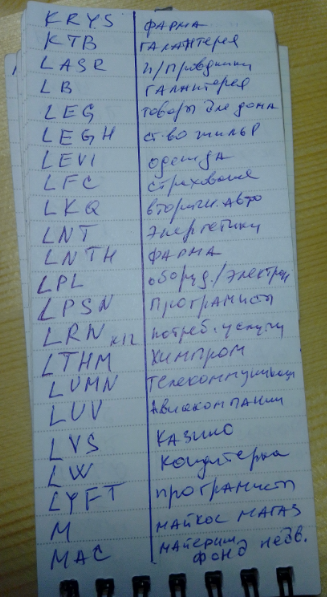 KRYS фарма
KTB галантерея
LASR п/проводники
LB галантерея
LEG товары для дома
LEGH ст-во жилья
LEVI одежда
LFC страхование
LKQ вторичн. авто
LNT энергетики
LNTH фарма
LPL оборуд./электрон
LPSN програмисты
LRN K12 потреб. услуги
LTHM химпром
LUMN телекоммуникаци
LUV авиакомпании
LVS казино
LW кондитерка
LYFT програмисты
M майкос магаз
MAC фонд недв.